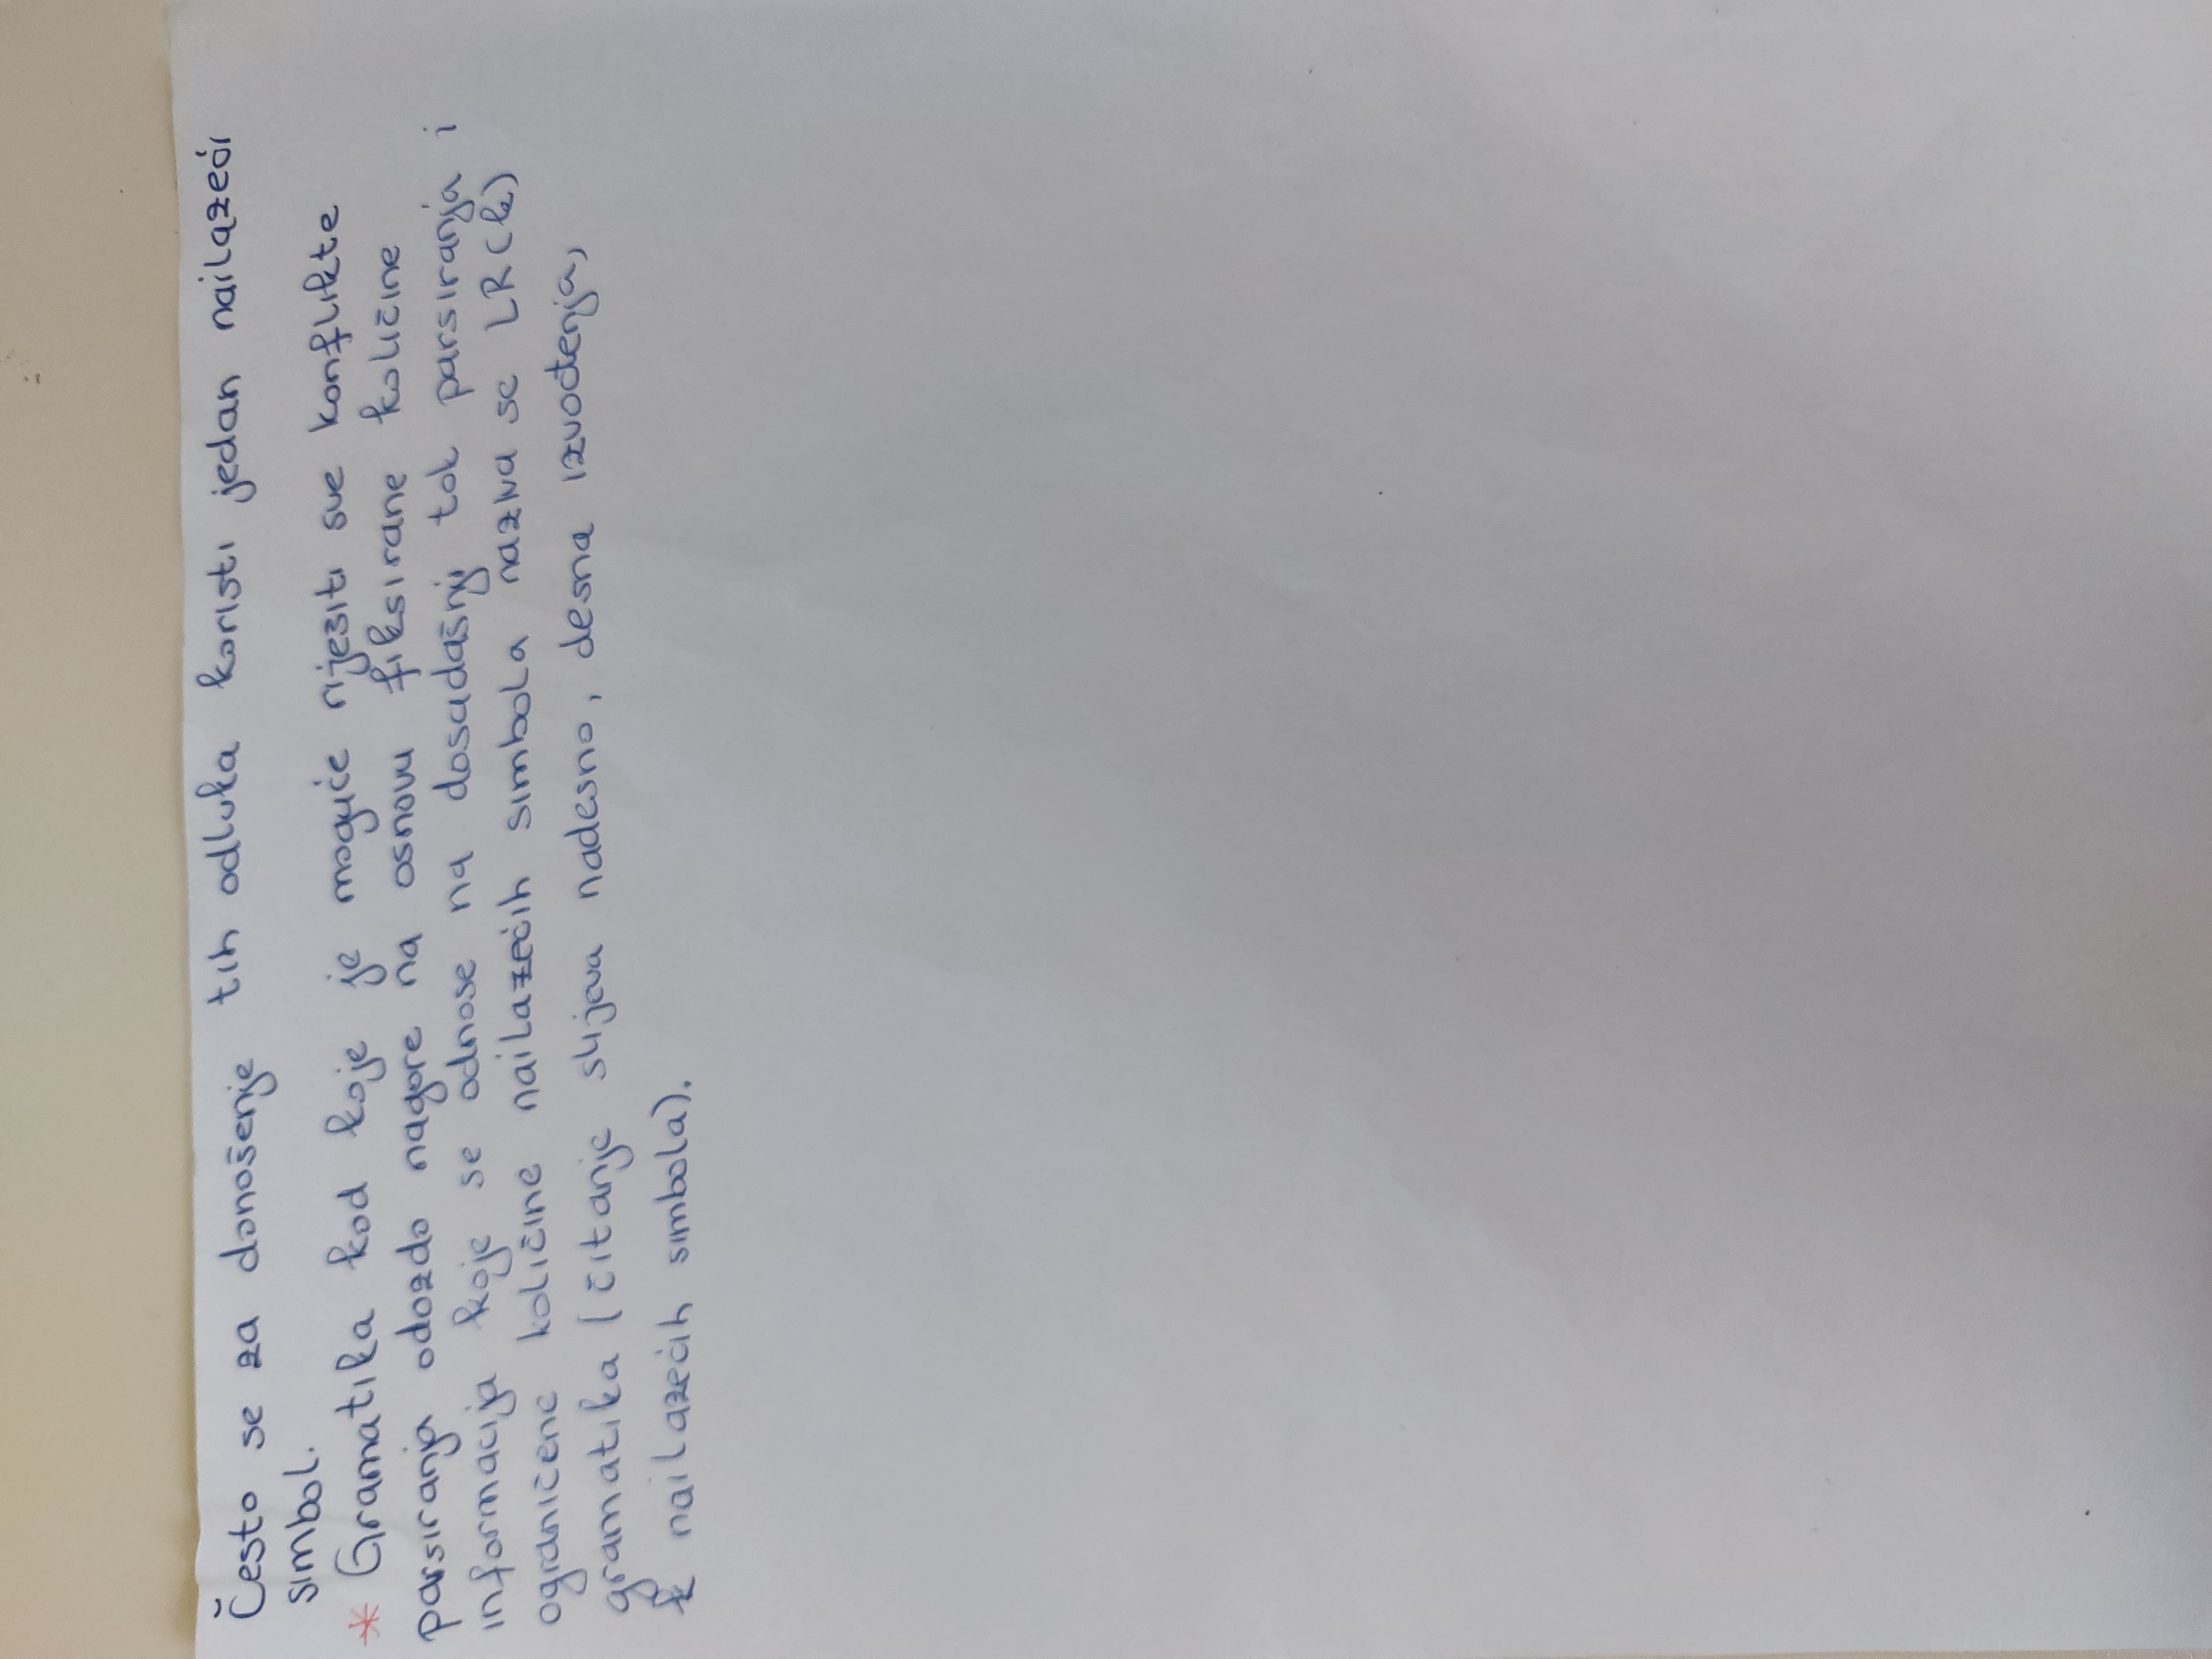 Često se za donošenje tih odluka koristi jedan nailazeći
simbol.
* Gramatika kod koje je moguće riješiti sve konflikte
parsiranja odozdo nagore na osnovu fiksirane količine
informacija koje se odnose na dosadašnji tok parsiranja i
ograničene količine nailazećih simbola naziva se LR(k)
gramatika (čitanje slijeva nadesno, desna izvođenja,
k nailazećih simbola).